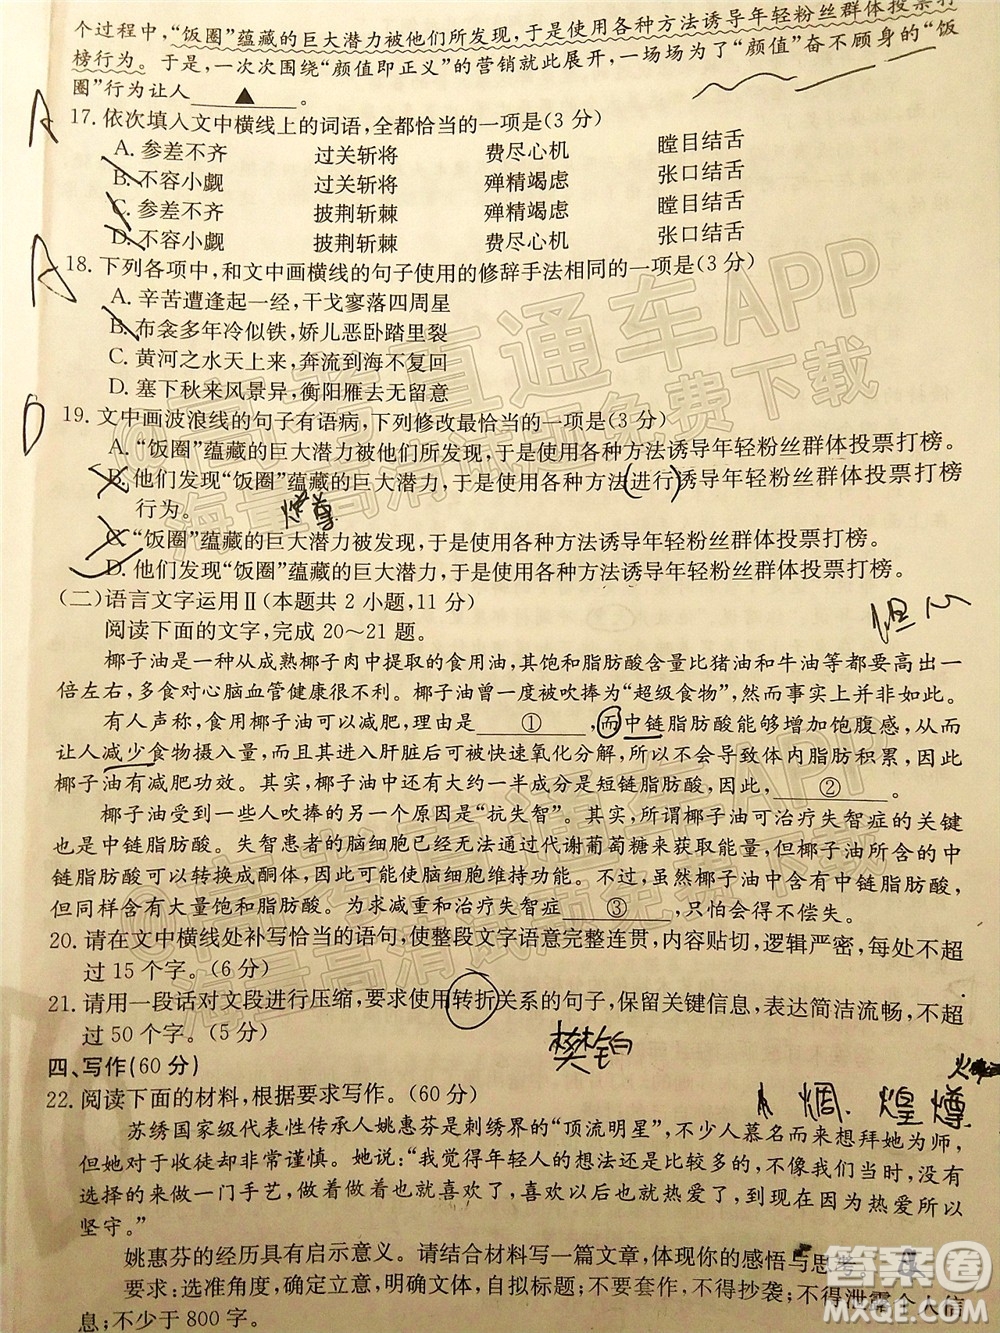 个过程中，“饭圈”蕴藏的巨大潜力被他们所发现，于是使用各种方法诱导年轻粉丝群体投票打
榜行为。于是，一次次围绕“颜值即正义”的营销就此展开，一场场为了“颜值”奋不顾身的“饭
圈”行为让人 ▲ 。
17. 依次填入文中横线上的词语，全都恰当的一项是(3 分)
A. 参差不齐 过关斩将 费尽心机 瞠目结舌
B. 不容小觑 过关斩将 殚精竭虑 张口结舌
C. 参差不齐 披荆斩棘 殚精竭虑 瞠目结舌
D. 不容小觑 披荆斩棘 费尽心机 张口结舌
A
18. 下列各项中，和文中画横线的句子使用的修辞手法相同的一项是(3 分)
A. 辛苦遭逢起一经，干戈寥落四周星
B. 布衾多年冷似铁，娇儿恶卧踏里裂
C. 黄河之水天上来，奔流到海不复回
D. 塞下秋来风景异，衡阳雁去无留意
A
19. 文中画波浪线的句子有语病，下列修改最恰当的一项是(3 分)
A. “饭圈”蕴藏的巨大潜力被他们所发现，于是使用各种方法诱导年轻粉丝群体投票打榜。
B. 他们发现“饭圈”蕴藏的巨大潜力，于是使用各种方法进行诱导年轻粉丝群体投票打榜
行为。
C. “饭圈”蕴藏的巨大潜力被发现，于是使用各种方法诱导年轻粉丝群体投票打榜。
D. 他们发现“饭圈”蕴藏的巨大潜力，于是使用各种方法诱导年轻粉丝群体投票打榜。
D
(二)语言文字运用Ⅱ(本题共 2 小题，11 分)
阅读下面的文字，完成 20～21 题。
椰子油是一种从成熟椰子肉中提取的食用油，其饱和脂肪酸含量比猪油和牛油等都要高出一
倍左右，多食对心脑血管健康很不利。椰子油曾一度被吹捧为“超级食物”，然而事实上并非如此。
有人声称，食用椰子油可以减肥，理由是 ① ，而中链脂肪酸能够增加饱腹感，从而
让人减少食物摄入量，而且其进入肝脏后可被快速氧化分解，所以不会导致体内脂肪积累，因此
椰子油有减肥功效。其实，椰子油中还有大约一半成分是短链脂肪酸，因此， ② 。
椰子油受到一些人吹捧的另一个原因是“抗失智”。声称椰子油可治疗失智症的关键
也是中链脂肪酸。失智症患者的脑细胞已经无法通过代谢葡萄糖来获取能量，而椰子油所含的中
链脂肪酸可以转换成酮体，因此可以使脑细胞维持机能。不过，虽然椰子油中含有中链脂肪酸，
但同样含有大量饱和脂肪酸。为求减重和治疗失智症 ③ ，只怕会得不偿失。
20. 请在文中横线处补写恰当的语句，使整段文字语意完整连贯，内容贴切，逻辑严密，每处不超
过 15 个字。(6 分)
21. 请用一段话对文段进行压缩，要求使用转折关系的句子，保留关键信息，表达简洁流畅，不超
过 50 个字。(5 分)
四、写作(60 分)
22. 阅读下面的材料，根据要求写作。(60 分)
苏绣国家级代表性传承人姚惠芬是刺绣界的“顶流明星”，不少人慕名而来想拜她为师，
但她对于收徒却非常谨慎。她说：“我觉得年轻人的想法还是比较多的，不能头脑发热，没有
选择的来做一门手艺，做着做着也就喜欢了，喜欢了也就热爱了，到现在因为热爱所以
坚守。”
姚惠芬的经历具有启示意义。请结合材料写一篇文章，体现你的感悟与思考。
要求：选准角度，确定立意，明确文体，自拟标题；不要套作，不得抄袭；不得泄露个人信
息；不少于 800 字。
高考直通车APP
海量高清试题免费下载
@高考直通车APP
海量高清试题免费下载
答案圈